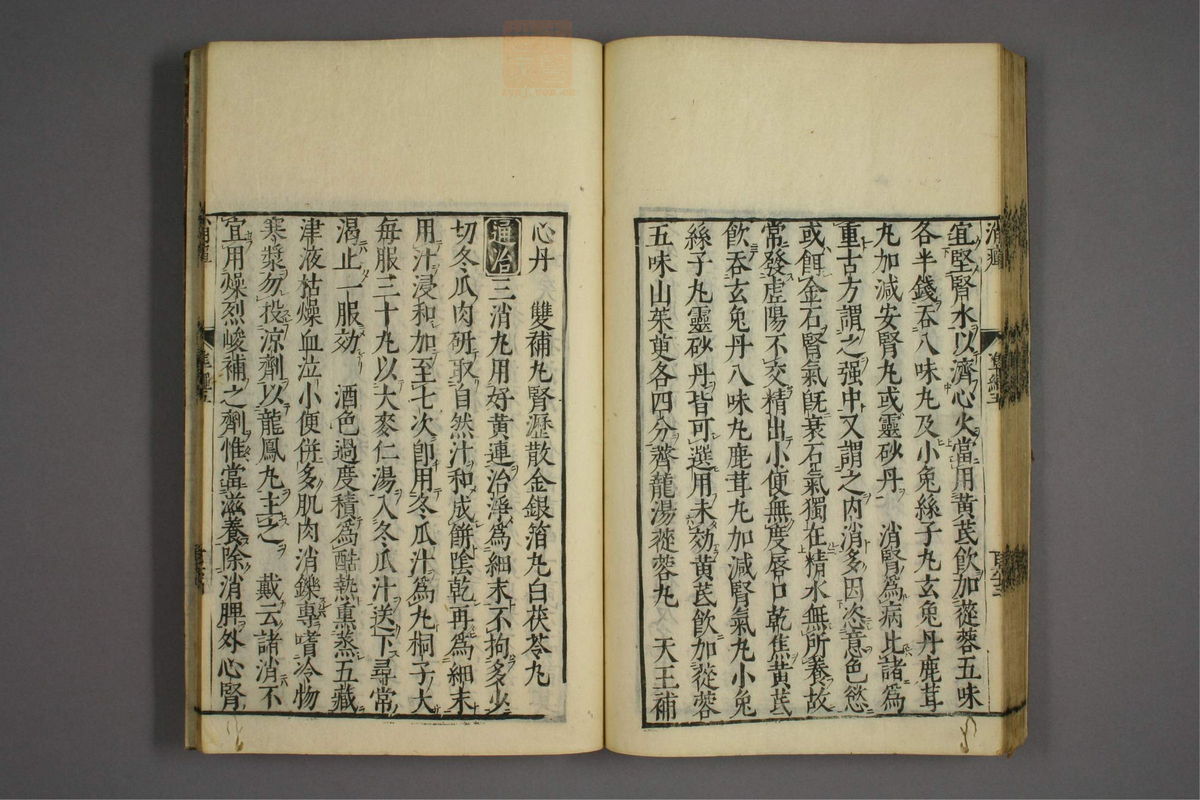 宜堅腎水以濟心火當用黃芪飲加蓯蓉五味
各半錢吞八味丸及小兔絲子丸玄兔丹鹿茸
丸加減安腎丸或靈砂丹 消腎爲病比諸爲
重古方謂之强中又謂之内消多因恣意色慾
或餌金石腎氣旣衰石氣獨在精水無所養故
常發虛陽不交精出小便無度唇口乾焦黃芪
飲吞玄兔丹八味丸鹿茸丸加減腎氣丸小兔
絲子丸靈砂丹皆可選用未効黃芪飲加蓯蓉
五味山茱萸各四分薺龍湯蓯蓉丸 天王補
心丹 雙補丸腎瀝散金銀箔丸白茯苓丸
通治 三消丸用好黃連治淨爲細末不拘多少
切冬瓜肉研取自然汁和成餅陰乾再爲細末
用汁浸和加至七次卽用冬瓜汁爲丸桐子大
每服三十丸以大麥仁湯入冬瓜汁送下尋常
渴止一服効 酒色過度積爲酷熱熏蒸五藏
津液枯燥血泣小便併多肌肉消鑠專嗜冷物
寒漿勿投凉劑以龍鳳丸主之 戴云諸消不
宜用燥烈峻補之劑惟當滋養除消脾外心腎